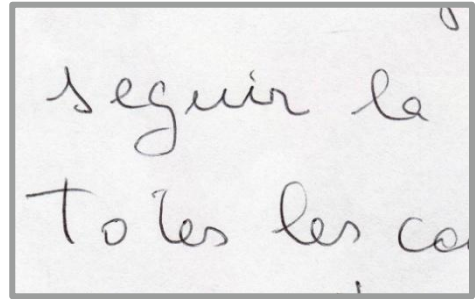 seguir la
totes les co